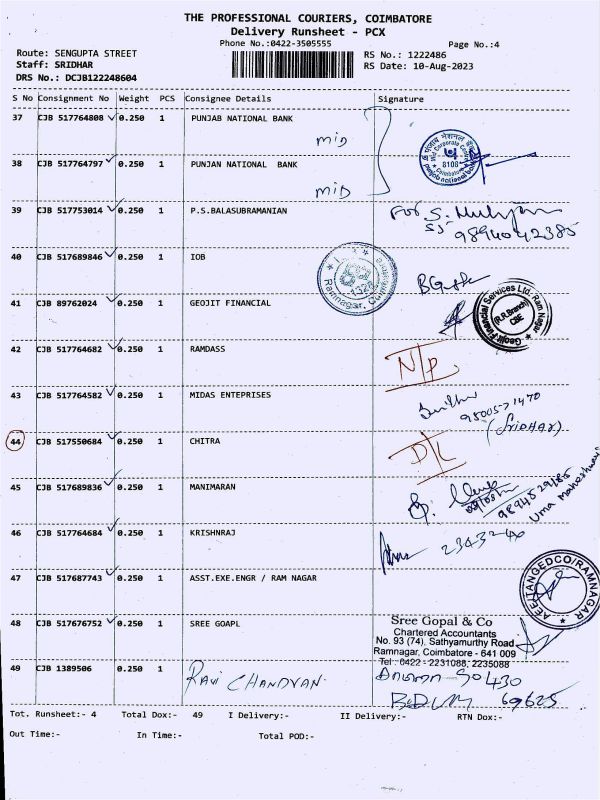 THE PROFESSIONAL COURIERS, COIMBATORE
Delivery Runsheet - PCX
Phone No.:0422-3505555
Page No.:4
Route: SENGUPTA STREET
RS No.: 1222486
Staff: SRIDHAR
RS Date: 10-Aug-2023
DRS No.: DCJB122248604
S No Consignment No Weight PCS Consignee Details Signature
37 CJB 517764808 0.250 1 PUNJAB NATIONAL BANK
MID
38 CJB 517764797 0.250 1 PUNJAN NATIONAL BANK
MID
8108
punjab national bank
39 CJB 517753014 0.250 1 P.S.BALASUBRAMANIAN
For S.
9894042385
40 CJB 517689846 0.250 1 IOB
1328
Ramnagar,
41 CJB 89762024 0.250 1 GEOJIT FINANCIAL
Geojit Financial Services Ltd, Ram Nagar
(R.R.Branch)
CBE
42 CJB 517764682 0.250 1 RAMDASS
N/P
43 CJB 517764582 0.250 1 MIDAS ENTEPRISES
9500571470
(SRIDHAR)
44 CJB 517550684 0.250 1 CHITRA
D/L
45 CJB 517689836 0.250 1 MANIMARAN
9894529185
Uma Maheshwari
46 CJB 517764684 0.250 1 KRISHNRAJ
47 CJB 517687743 0.250 1 ASST.EXE.ENGR / RAM NAGAR
AEE/TANGEDCO/RAMNAGAR
48 CJB 517676752 0.250 1 SREE GOAPL
Sree Gopal & Co
Chartered Accountants
No. 93 (74), Sathyamurthy Road
Ramnagar, Coimbatore - 641 009
Tel : 0422 - 2231088, 2235088
49 CJB 1389506 0.250 1
RAVI CHANDVAN
90430
69625
Tot. Runsheet:- 4 Total Dox:- 49 I Delivery:- II Delivery:- RTN Dox:-
Out Time:- In Time:- Total POD:-